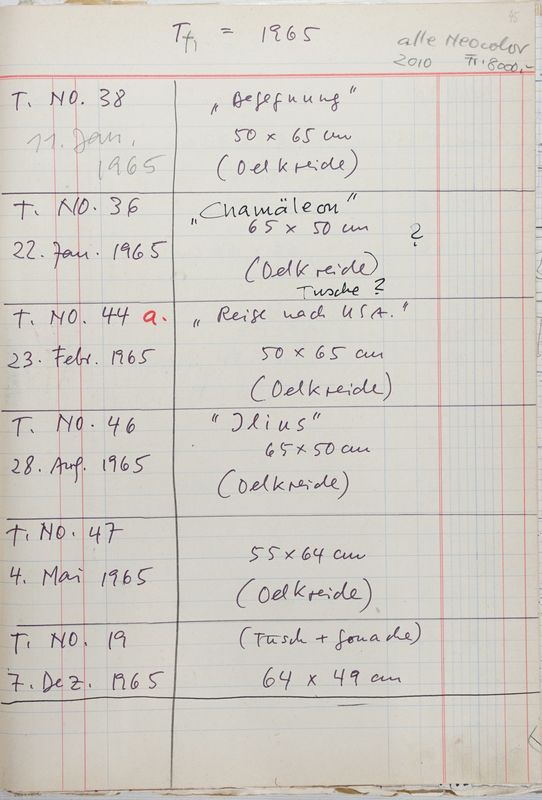 = 1965
45
alle Neocolor
2010 Fr. 8000,-
T. NO. 38 „Begegnung"
11. Jan. 50 x 65 cm
1965 (Oelkreide)
T. NO. 36 „Chamäleon"
65 x 50 cm ?
22. Jan. 1965 (Oelkreide)
Tusche ?
T. NO. 44 a. „Reise nach USA."
23. Febr. 1965 50 x 65 cm
(Oelkreide)
T. NO. 46 "Ilius"
65 x 50 cm
28. Aug. 1965 (Oelkreide)
T. NO. 47
55 x 64 cm
4. Mai 1965 (Oelkreide)
T. NO. 19 (Tusch + Gouache)
7. Dez. 1965 64 x 49 cm